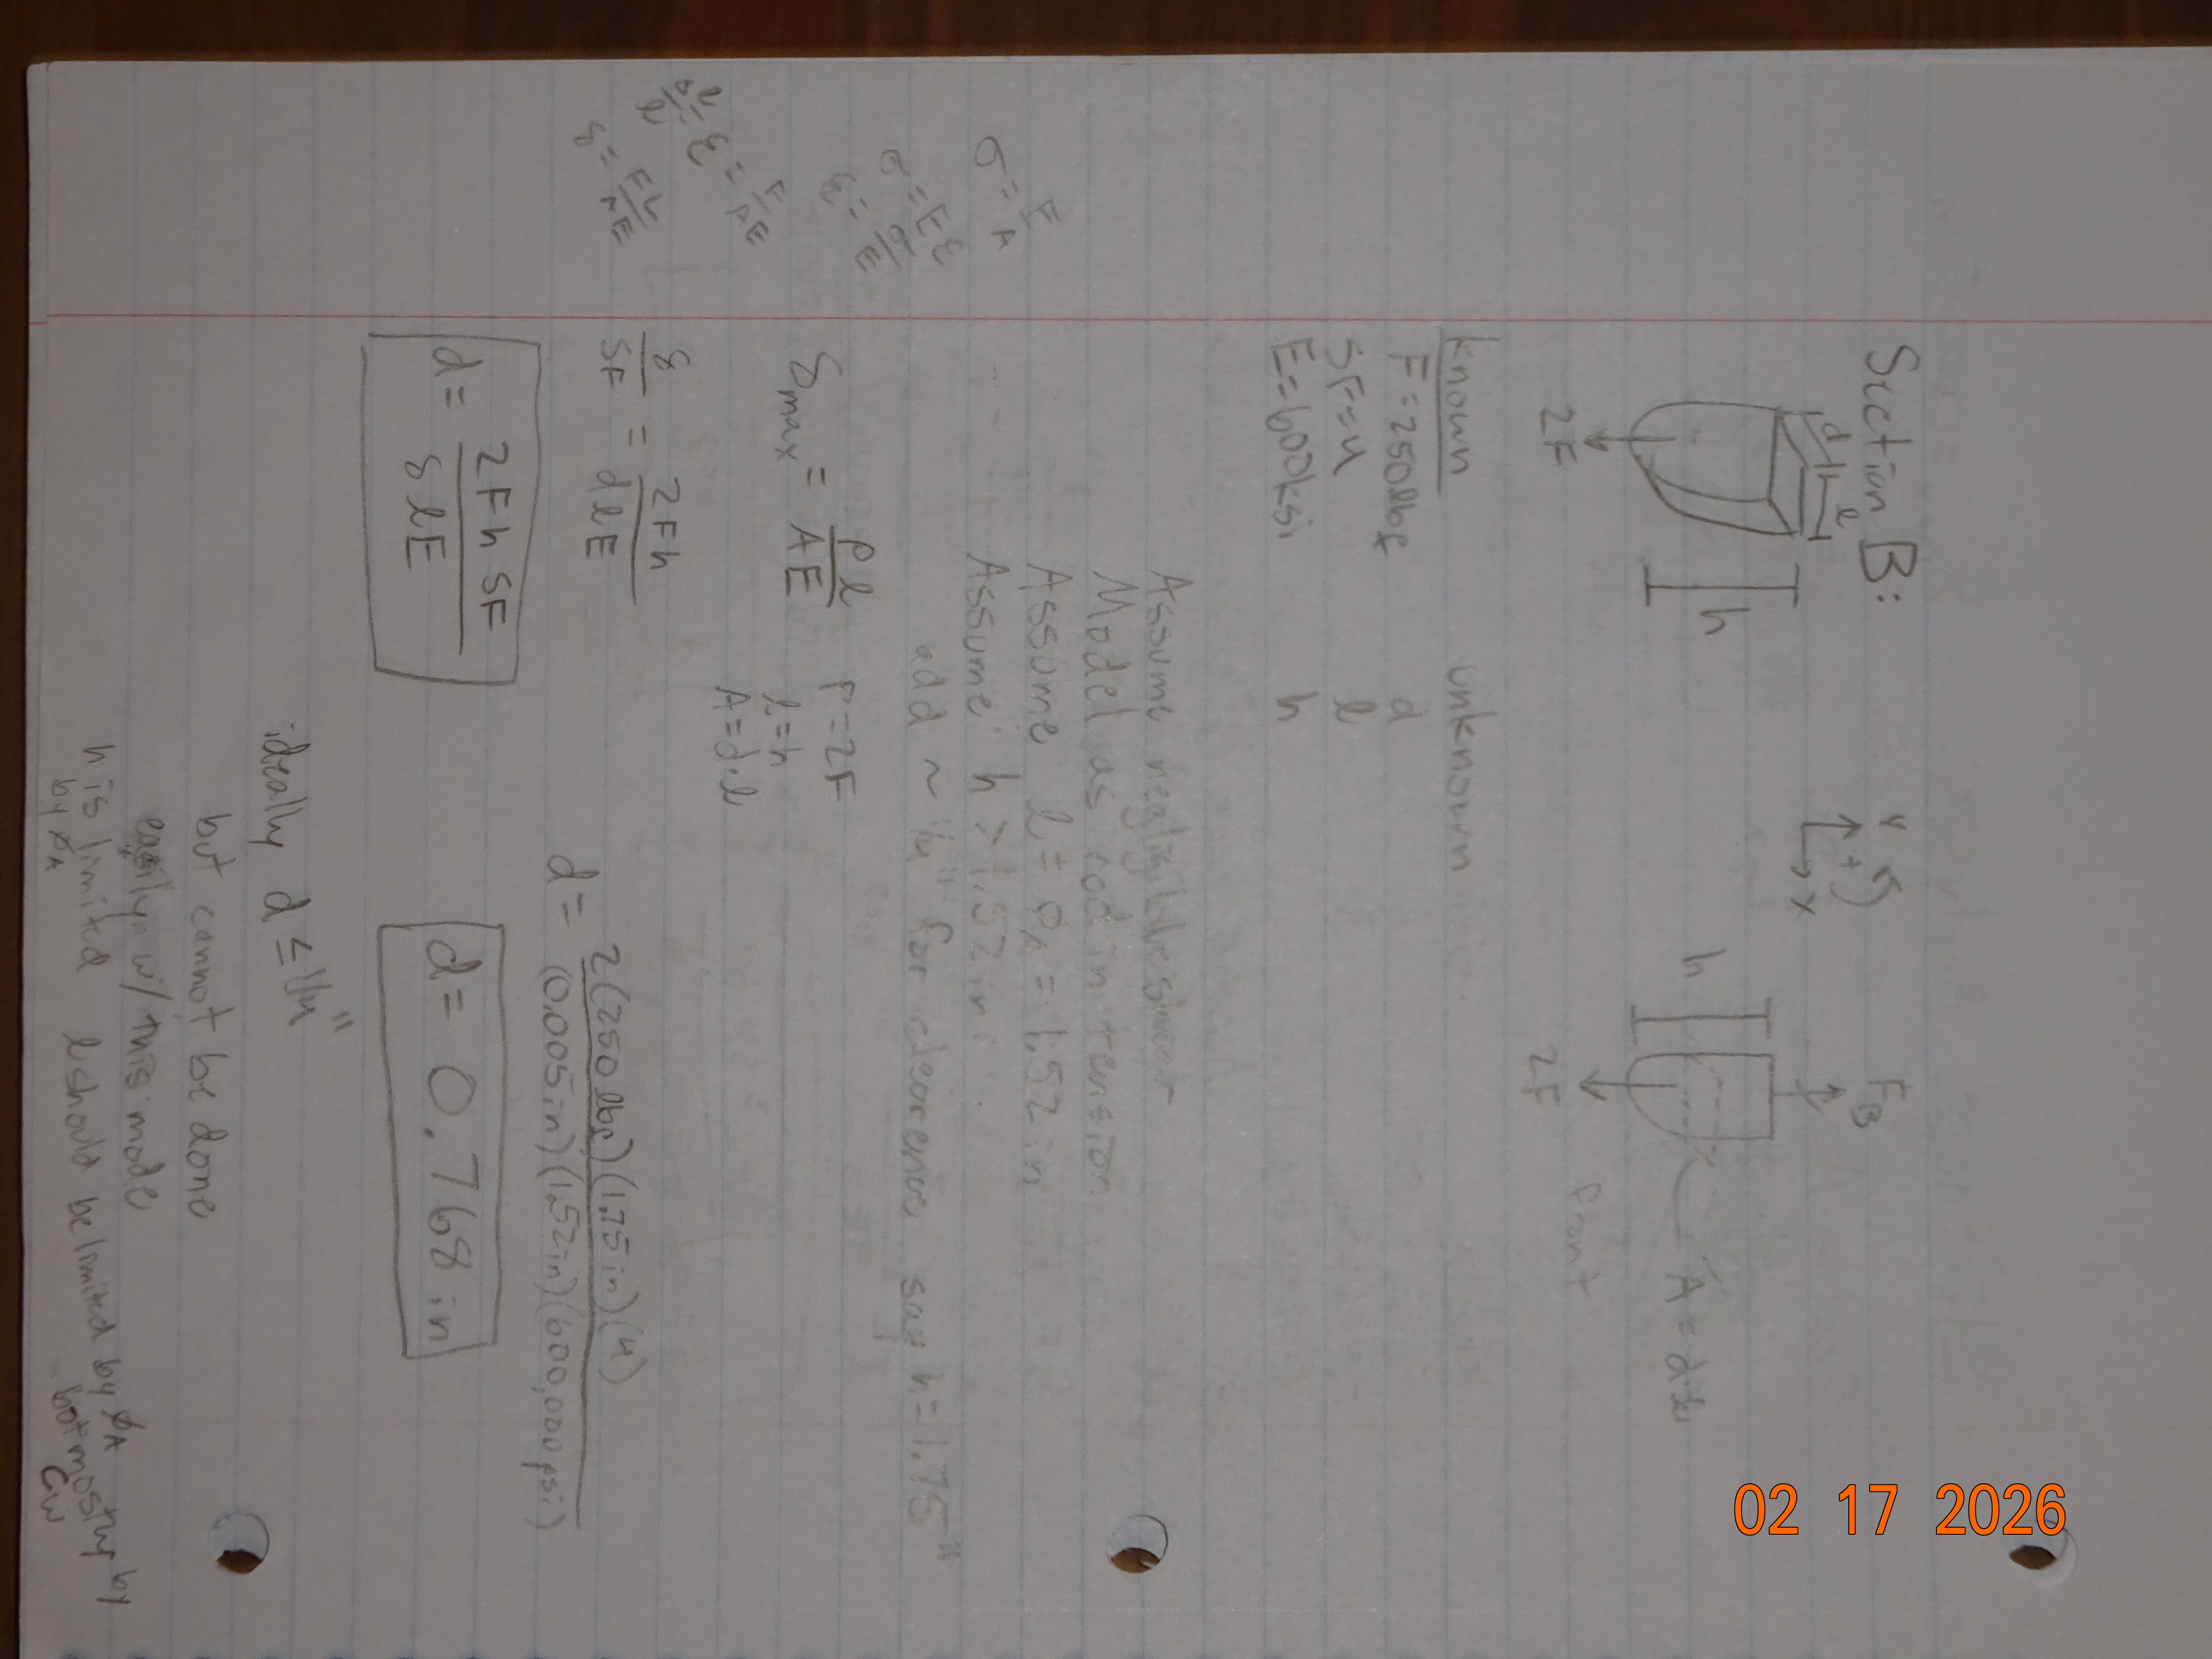 Section B:
d
l
h
2F
y
+
x
h
F_B
2F
Front
A = d·l
Known
F = 250 lbf
SF = 4
E = 600 ksi
unknown
d
l
h
Assume negligible shear
Model as rod in tension
Assume l = Ø_A = 1.52 in
Assume h > 1.52 in
add ~ 1/4" for clearance, say h = 1.75"
σ = F/A
σ = Eε
ε = σ/E
ε = F/AE
δ = Fh/AE
δ_max = Pl/AE
P = 2F
l = h
A = d·l
δ/SF = 2Fh/dlE
d = 2Fh SF/δlE
d = 2(250 lbf)(1.75 in)(4)/(0.005 in)(1.52 in)(600,000 psi)
d = 0.768 in
ideally d ≤ 1/4"
but cannot be done
easily w/ this mode
h is limited by Ø_A
l should be limited by Ø_A
but mostly by